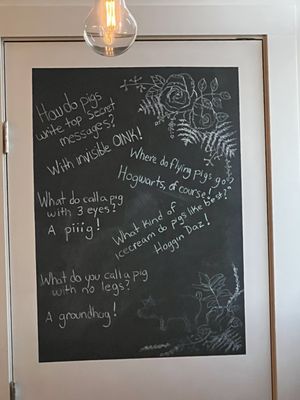 How do pigs
write top secret
messages?
With invisible OINK!
Where do flying pigs go?
Hogwarts, of course!
What do call a pig
with 3 eyes?
A piiig!
What kind of
icecream do pigs like best?
Hoggin Daz!
What do you call a pig
with no legs?
A groundhug!